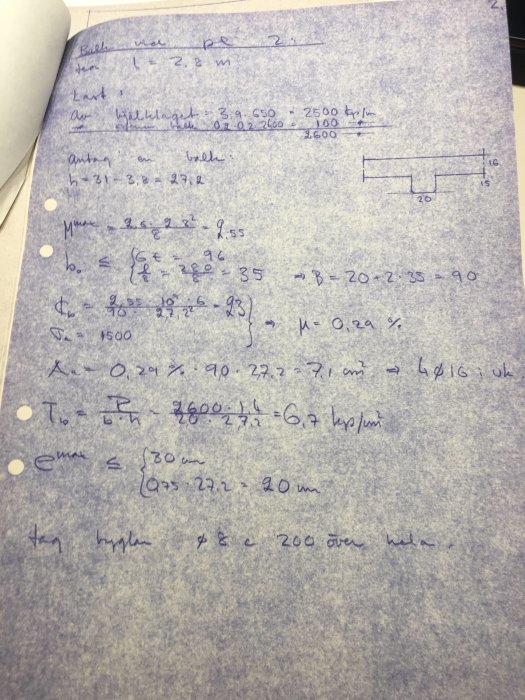 2.
Balk vid pl 2:
teor l = 2,8 m
Last:
Av bjelklaget = 3,9 · 650 = 2500 kp/m
balk 0,2 · 0,2 · 2600 = 100 "
2600 "
Antag en balk:
h = 31 - 3,8 = 27,2
16
15
20
M max = 2,6 · 2,8² / 8 = 2,55
b₀ ≤ { 6t = 96
l/8 = 280/8 = 35 ⇒ B = 20 + 2·35 = 90
σb = 2,55 · 10⁵ · 6 / 90 · 27,2² = 23
σa = 1500 } ⇒ μ = 0,29 %
Aa = 0,29 % · 90 · 27,2 = 7,1 cm² ⇒ 4 ø 16 i uk.
τb = P / b·h = 2600 · 1,4 / 20 · 27,2 = 6,7 kp/cm²
e max ≤ { 30 cm
0,75 · 27,2 = 20 cm
tag byglar ø 8 c 200 över hela.